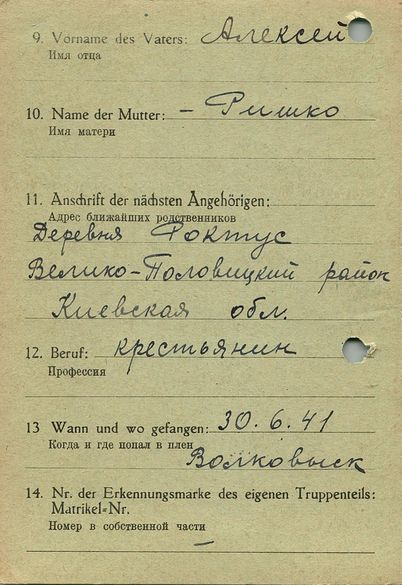 9. Vorname des Vaters: Алексей
Имя отца
10. Name der Mutter: – Ришко
Имя матери
11. Anschrift der nächsten Angehörigen:
Адрес ближайших родственников
Деревня Фоктус
Велико-Половицкий район
Киевская обл.
12. Beruf: крестьянин
Профессия
13 Wann und wo gefangen: 30. 6. 41
Когда и где попал в плен
Волковыск
14. Nr. der Erkennungsmarke des eigenen Truppenteils:
Matrikel=Nr.
Номер в собственной части
–